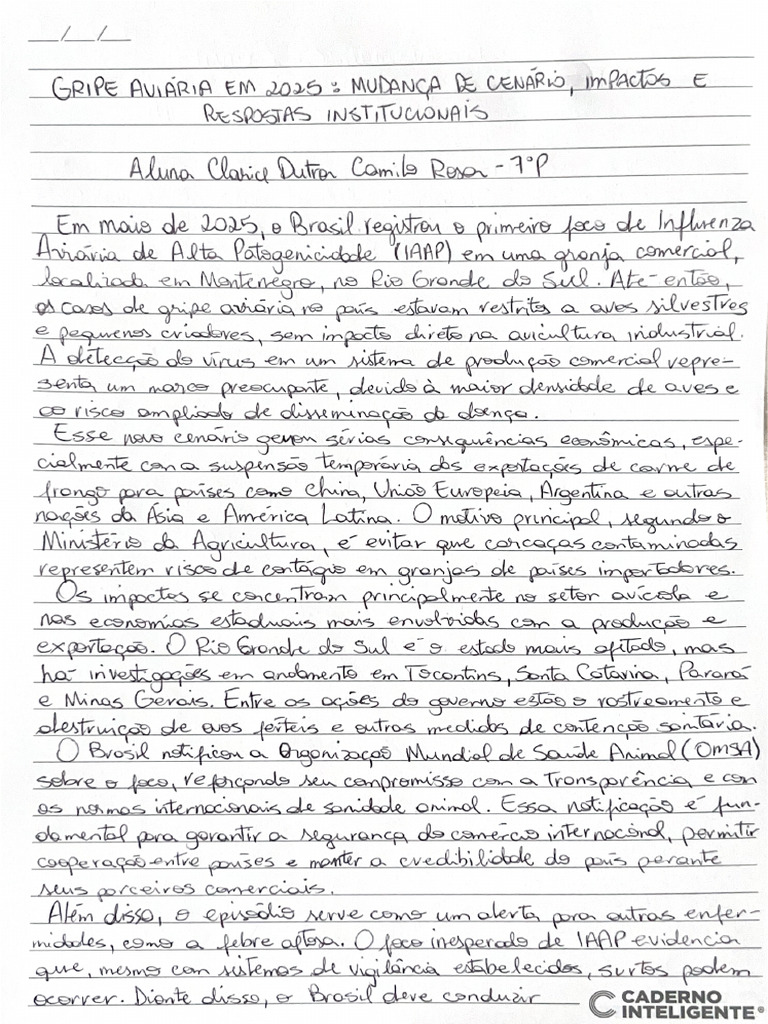 __/__/__
GRIPE AVIÁRIA EM 2025: MUDANÇA DE CENÁRIO, IMPACTOS E
RESPOSTAS INSTITUCIONAIS
Aluna Clarice Dutra Camilo Rosa - 7°P
Em maio de 2025, o Brasil registrou o primeiro foco de Influenza
Aviária de Alta Patogenicidade (IAAP) em uma granja comercial,
localizada em Montenegro, no Rio Grande do Sul. Até então,
os casos de gripe aviária no país estavam restritos a aves silvestres
e pequenos criadores, sem impacto direto na avicultura industrial.
A detecção do vírus em um sistema de produção comercial repre-
senta um marco preocupante, devido à maior densidade de aves e
ao risco ampliado de disseminação da doença.
Esse novo cenário gerou sérias consequências econômicas, espe-
cialmente com a suspensão temporária das exportações de carne de
frango para países como China, União Europeia, Argentina e outras
nações da Ásia e América Latina. O motivo principal, segundo o
Ministério da Agricultura, é evitar que carcaças contaminadas
representem risco de contágio em granjas de países importadores.
Os impactos se concentram principalmente no setor avícola e
nas economias estaduais mais envolvidas com a produção e
exportação. O Rio Grande do Sul é o estado mais afetado, mas
há investigações em andamento em Tocantins, Santa Catarina, Paraná
e Minas Gerais. Entre as ações do governo estão o rastreamento e
destruição de ovos férteis e outras medidas de contenção sanitária.
O Brasil notificou a Organização Mundial de Saúde Animal (OMSA)
sobre o foco, reforçando seu compromisso com a transparência e com
as normas internacionais de sanidade animal. Essa notificação é fun-
damental para garantir a segurança do comércio internacional, permitir
cooperação entre países e manter a credibilidade do país perante
seus parceiros comerciais.
Além disso, o episódio serve como um alerta para outras enfer-
midades, como a febre aftosa. O foco inesperado de IAAP evidencia
que, mesmo com sistemas de vigilância estabelecidos, surtos podem
ocorrer. Diante disso, o Brasil deve conduzir
CADERNO
INTELIGENTE®